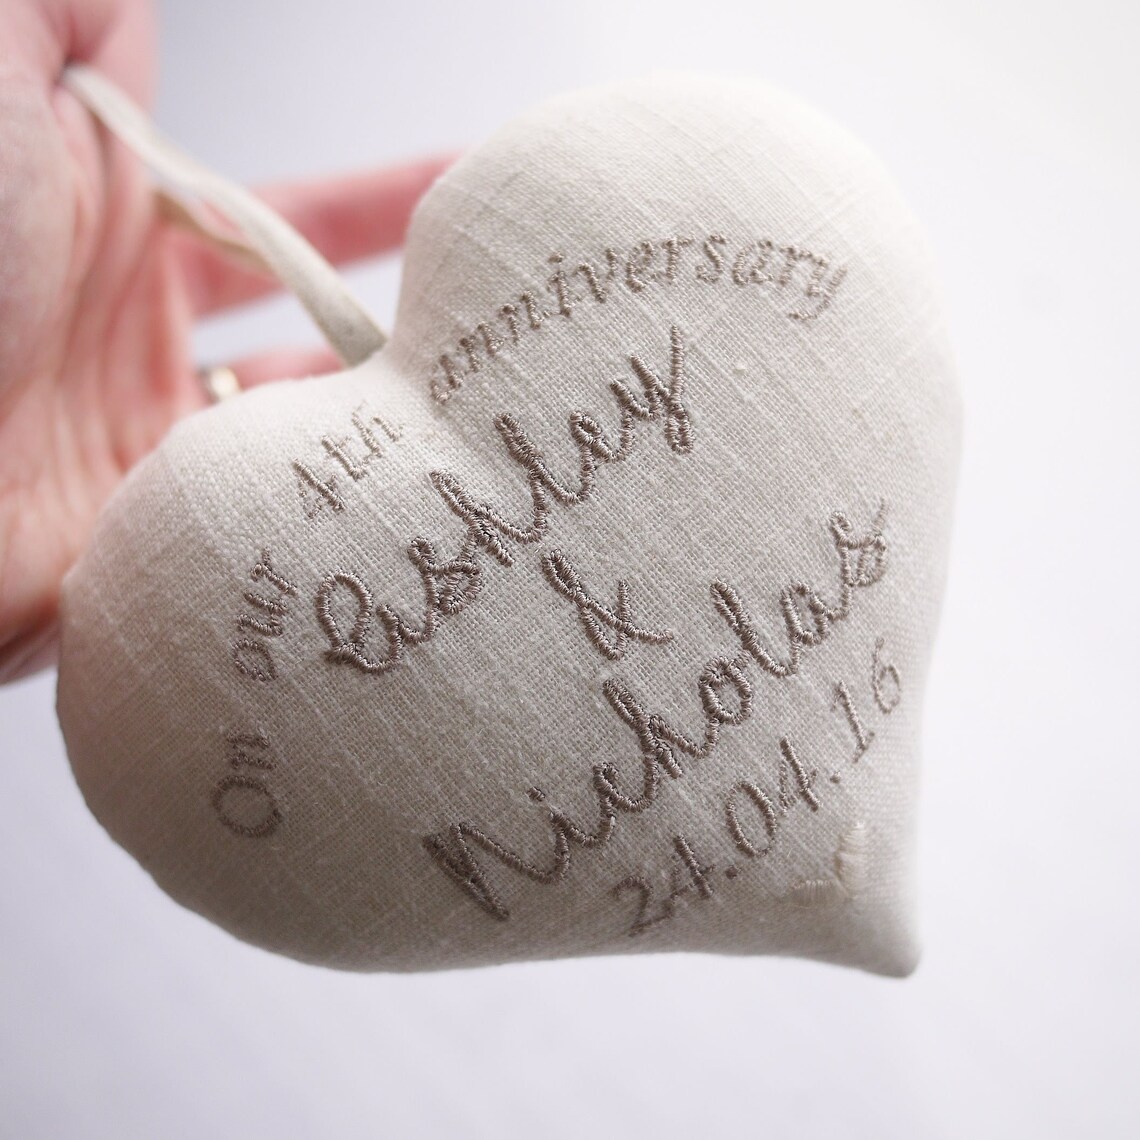 On our 4th anniversary
Ashley
&
Nicholas
24.04.16